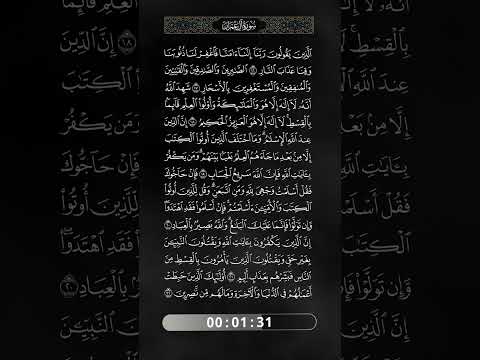 سُورَةُ آلِ عِمْرَانَ
ٱلَّذِينَ يَقُولُونَ رَبَّنَآ إِنَّنَآ ءَامَنَّا فَٱغْفِرْ لَنَا ذُنُوبَنَا
وَقِنَا عَذَابَ ٱلنَّارِ ١٦ ٱلصَّٰبِرِينَ وَٱلصَّٰدِقِينَ وَٱلْقَٰنِتِينَ
وَٱلْمُنفِقِينَ وَٱلْمُسْتَغْفِرِينَ بِٱلْأَسْحَارِ ١٧ شَهِدَ ٱللَّهُ
أَنَّهُۥ لَآ إِلَٰهَ إِلَّا هُوَ وَٱلْمَلَٰٓئِكَةُ وَأُو۟لُوا۟ ٱلْعِلْمِ قَآئِمًۢا
بِٱلْقِسْطِ ۚ لَآ إِلَٰهَ إِلَّا هُوَ ٱلْعَزِيزُ ٱلْحَكِيمُ ١٨ إِنَّ ٱلدِّينَ
عِندَ ٱللَّهِ ٱلْإِسْلَٰمُ ۗ وَمَا ٱخْتَلَفَ ٱلَّذِينَ أُوتُوا۟ ٱلْكِتَٰبَ
إِلَّا مِنۢ بَعْدِ مَا جَآءَهُمُ ٱلْعِلْمُ بَغْيًۢا بَيْنَهُمْ ۗ وَمَن يَكْفُرْ
بِـَٔايَٰتِ ٱللَّهِ فَإِنَّ ٱللَّهَ سَرِيعُ ٱلْحِسَابِ ١٩ فَإِنْ حَآجُّوكَ
فَقُلْ أَسْلَمْتُ وَجْهِىَ لِلَّهِ وَمَنِ ٱتَّبَعَنِ ۗ وَقُل لِّلَّذِينَ أُوتُوا۟
ٱلْكِتَٰبَ وَٱلْأُمِّيِّـۧنَ ءَأَسْلَمْتُمْ ۚ فَإِنْ أَسْلَمُوا۟ فَقَدِ ٱهْتَدَوا۟ ۖ
وَّإِن تَوَلَّوْا۟ فَإِنَّمَا عَلَيْكَ ٱلْبَلَٰغُ ۗ وَٱللَّهُ بَصِيرٌۢ بِٱلْعِبَادِ ٢٠
إِنَّ ٱلَّذِينَ يَكْفُرُونَ بِـَٔايَٰتِ ٱللَّهِ وَيَقْتُلُونَ ٱلنَّبِيِّـۧنَ
بِغَيْرِ حَقٍّ وَيَقْتُلُونَ ٱلَّذِينَ يَأْمُرُونَ بِٱلْقِسْطِ مِنَ
ٱلنَّاسِ فَبَشِّرْهُم بِعَذَابٍ أَلِيمٍ ٢١ أُو۟لَٰٓئِكَ ٱلَّذِينَ حَبِطَتْ
أَعْمَٰلُهُمْ فِى ٱلدُّنْيَا وَٱلْءَاخِرَةِ وَمَا لَهُم مِّن نَّٰصِرِينَ ٢٢
00:01:31